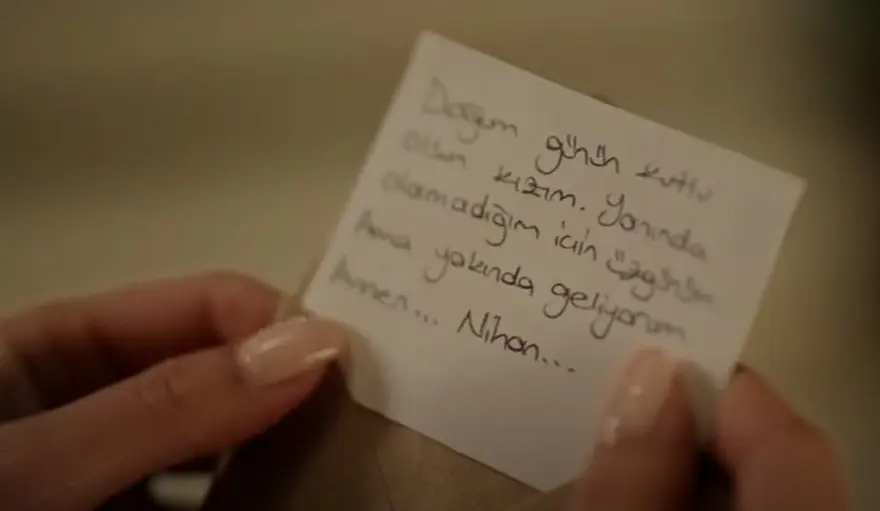 Doğum günün kutlu
olsun kızım. Yanında
olamadığım için üzgünüm.
Ama yakında geliyorum
Annen... Nihan...